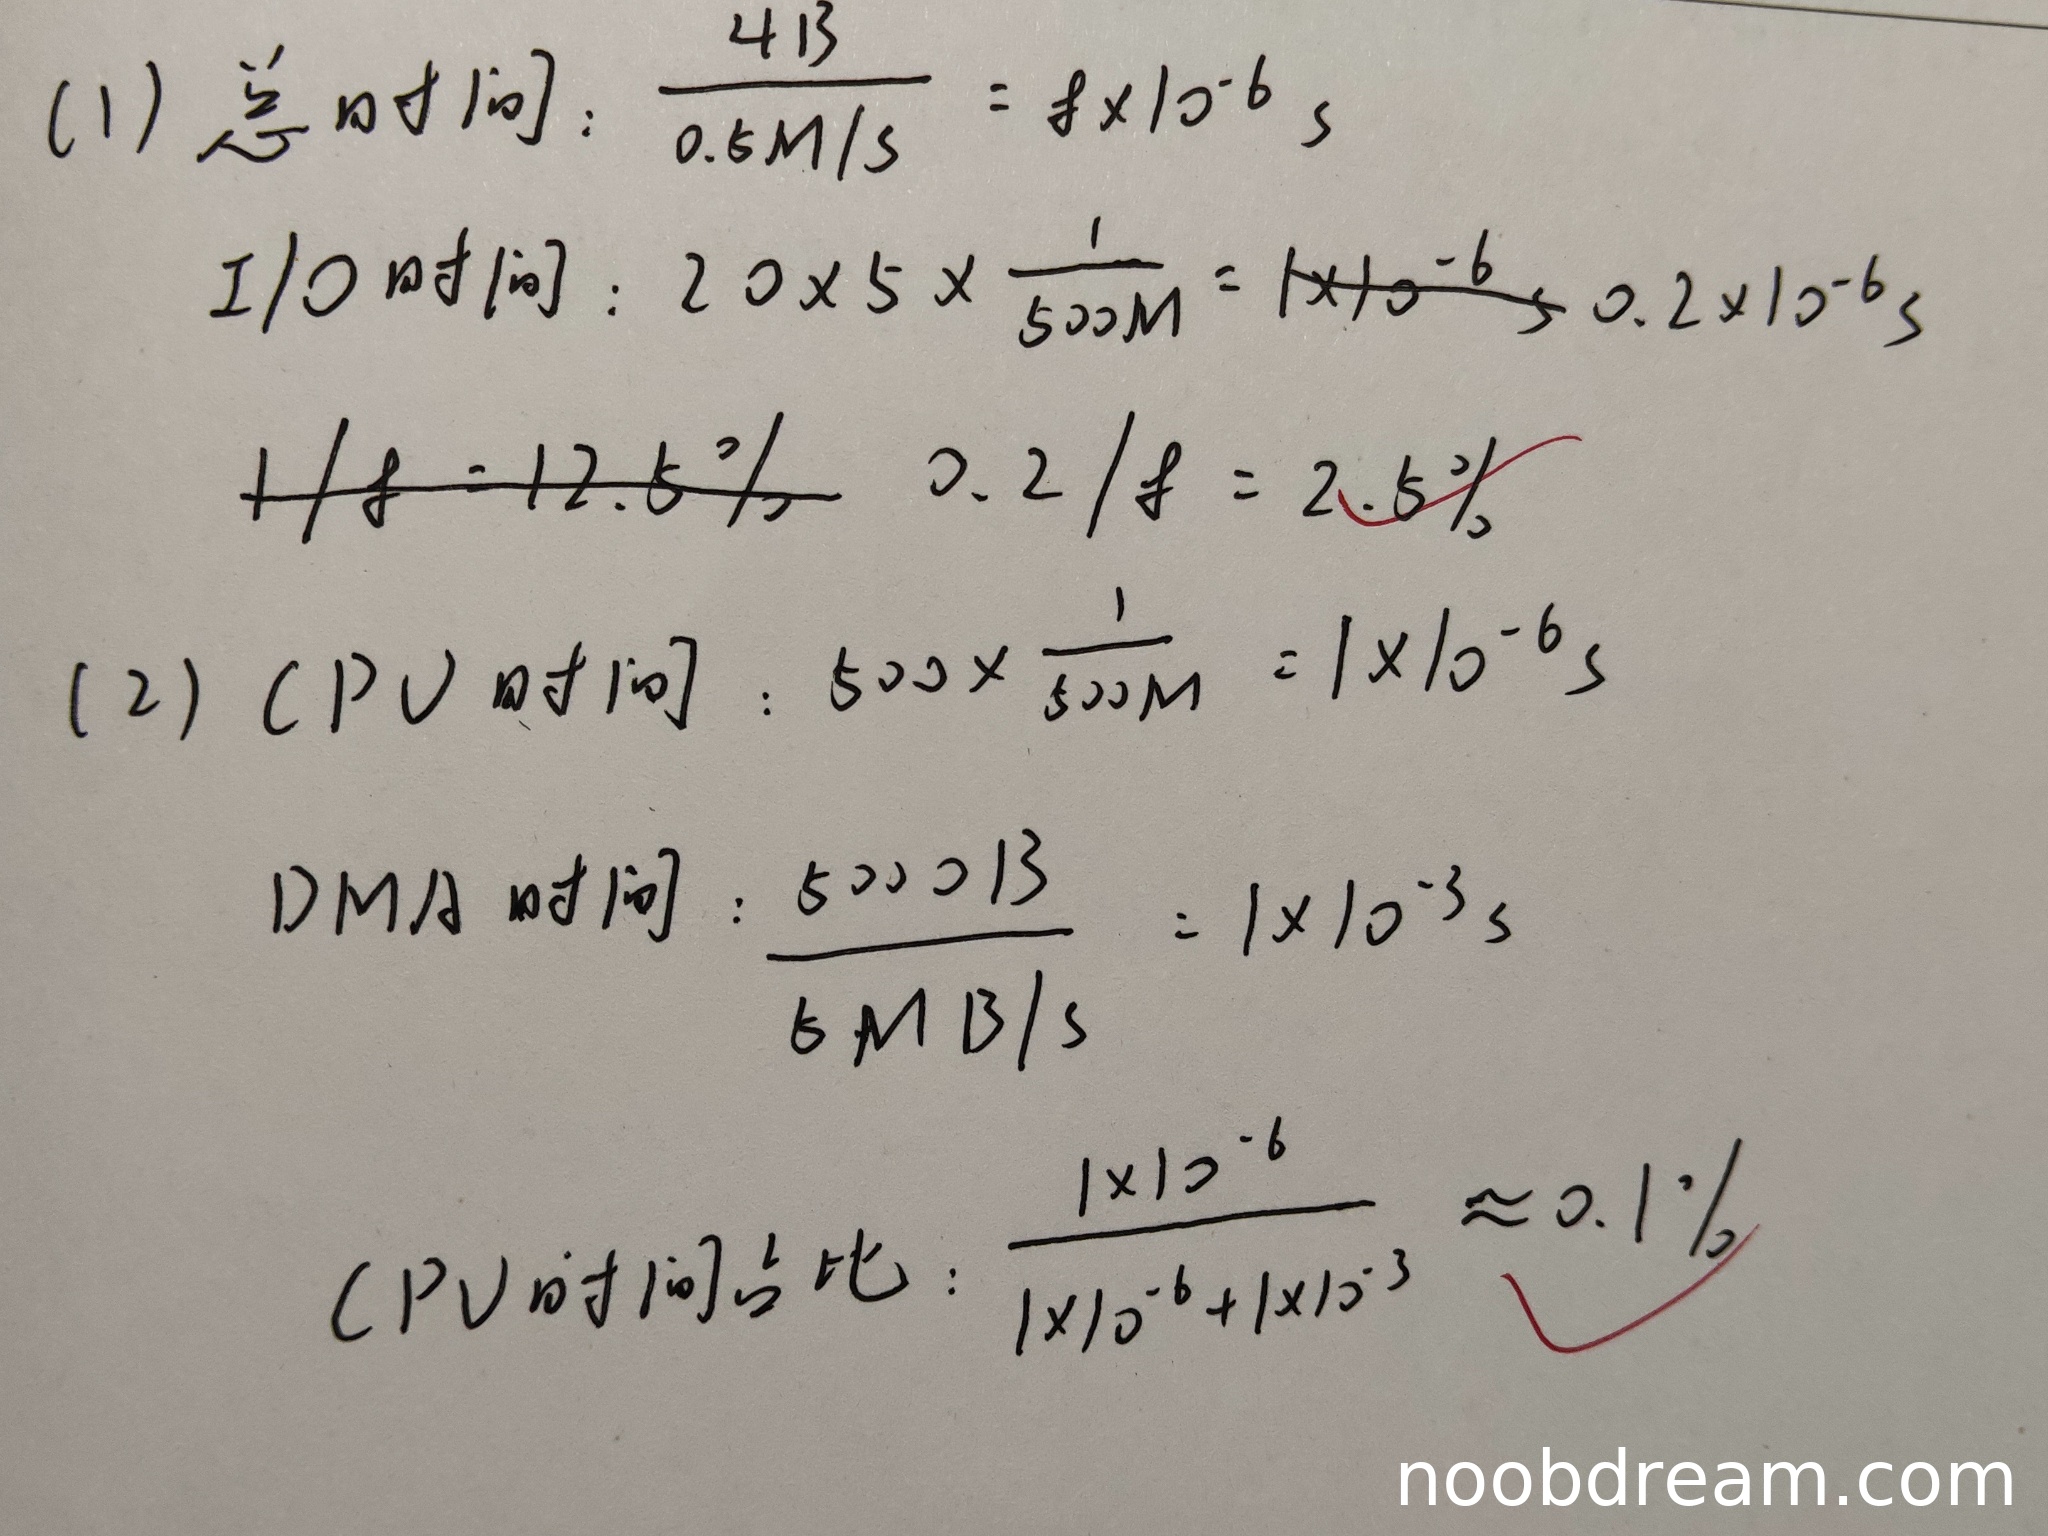 (1) 总时间: 4B / 0.5M/s = 8×10⁻⁶ s
I/O时间: 20×5×1/500M = 1×10⁻⁶ s 0.2×10⁻⁶ s
1/8 = 12.5% 0.2/8 = 2.5%
(2) CPU时间: 500×1/500M = 1×10⁻⁶ s
DMA时间: 5000B / 5MB/s = 1×10⁻³ s
CPU时间占比: 1×10⁻⁶ / 1×10⁻⁶+1×10⁻³ ≈ 0.1%
noobdream.com